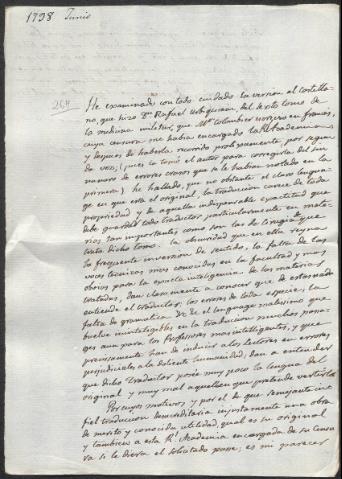 1798 Junio
264
He examinado con todo cuidado la version al castella-
no, que hizo Dn. Rafael del sexto tomo de
la medicina militar, que Mr. Colombier escrivio en frances,
cuya censura me habia encargado la Rl. Academia
y despues de haberla recorrido prolijamente, por segun
da vez, (pues la tomó el autor para corregirla del sin
numero de errores crasos que se le habian notado en la
primera) he hallado, que no obstante el claro lengua-
ge en que está el original, la traduccion carece de toda
propriedad y de aquella indispensable exactitud que
debe guardar todo traductor particularmente en mate-
rias tan importantes como son las de cirugia que
trata dicho tomo. la obscuridad que en ella reyna
la frequente inversion de sentido, la falta de las
voces tecnicas mas conocidas en la facultad y muy
obvias para la exacta inteligencia de las materias
tratadas, dan claramente a conocer que de estas nada
entiende el traductor, los errores de toda especie, la
falta de gramatica &c &c el lenguage malissimo que
buelve inintelegibles en la traduccion muchos pasa-
ges aun para los Profesores mas inteligentes, y que
precisamente han de inducir a los lectores en errores
perjudiciales a la doliente humanidad, dan a entender
que dicho traductor posee muy poco la lengua del
original y muy mal aquella en que pretende vertirla
Por cuyos motivos y por el de que semejante in-
fiel traduccion desacreditaria injustamente una obra
de merito y conocida utilidad, qual es su original
y tambien a esta Rl. Academia encargada de su censu
ra si le diera el solicitado passe, es mi parecer